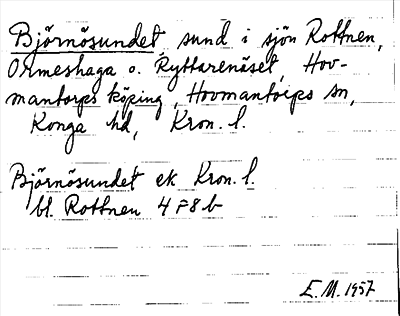 Björnösundet, sund i sjön Rottnen,
Ormeshaga o. Ryttarenäset, Hov-
mantorps köping, Hovmantorps sn,
Konga hd, Kron. l.
Björnösundet ek Kron. l.
bl. Rottnen 4 F 8 b
E. M. 1957